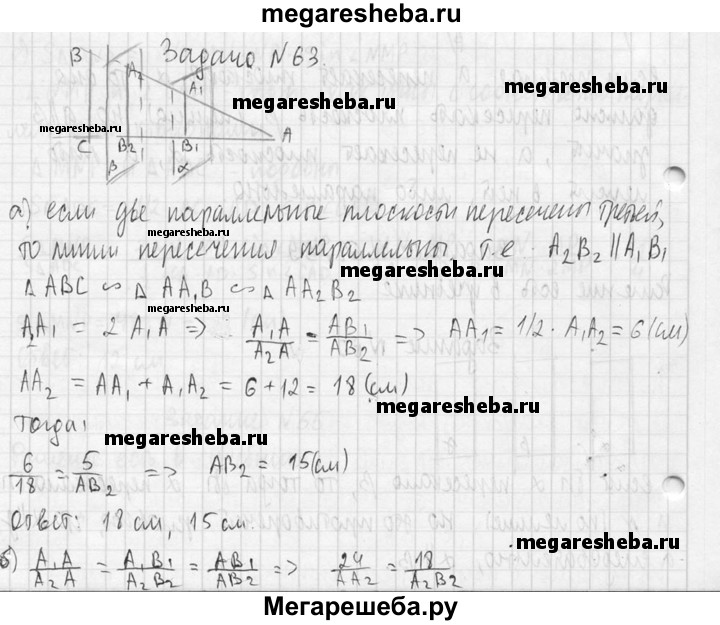 megaresheba.ru
Задача N63.
B A₂ A₁
megaresheba.ru
megaresheba.ru
megaresheba.ru
C B₂ B₁ A
β α
а) если две параллельные плоскости пересечены третьей,
то линии пересечения параллельны, т.е. A₂B₂ || A₁B₁
megaresheba.ru
Δ ABC ∽ Δ AA₁B ∽ Δ AA₂B₂
megaresheba.ru
A₁A₂ = 2 A₁A => A₁A/A₂A = AB₁/AB₂ => AA₁ = 1/2 · A₁A₂ = 6 (см)
AA₂ = AA₁ + A₁A₂ = 6 + 12 = 18 (см)
megaresheba.ru
Тогда:
megaresheba.ru
6/18 = 5/AB₂ => AB₂ = 15 (см)
Ответ: 18 см, 15 см
megaresheba.ru
б) A₁A/A₂A = A₁B₁/A₂B₂ = AB₁/AB₂ => 24/AA₂ = 18/A₂B₂
Мегарешеба.ру